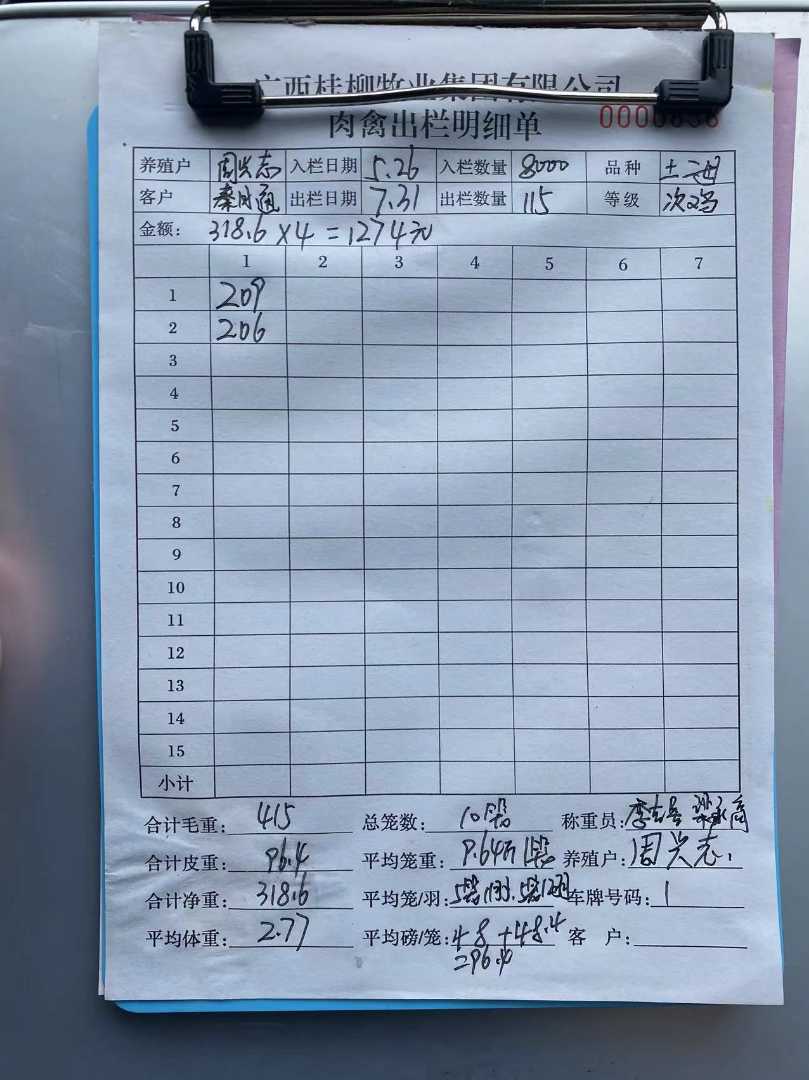 广西桂柳牧业集团有限公司
肉禽出栏明细单
养殖户 周兴志 入栏日期 5.26 入栏数量 8000 品种 土二
客户 出栏日期 7.31 出栏数量 115 等级 次鸡
金额: 318.6×4=1274元
1 2 3 4 5 6 7
1 209
2 206
3
4
5
6
7
8
9
10
11
12
13
14
15
小计
合计毛重: 415 总笼数: 10 称重员:
合计皮重: 96.4 平均笼重: 9.64 养殖户: 周兴志
合计净重: 318.6 平均笼/羽: 车牌号码: 1
平均体重: 2.77 平均磅/笼: 48+48.4 客 户:
=96.4